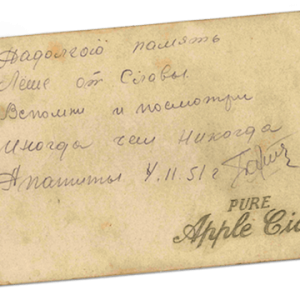 Надолгою память
Леше от Славы
Вспомни и посмотри
Иногда чем никогда
Апатиты 4.11.51 г
PURE
Apple Ci